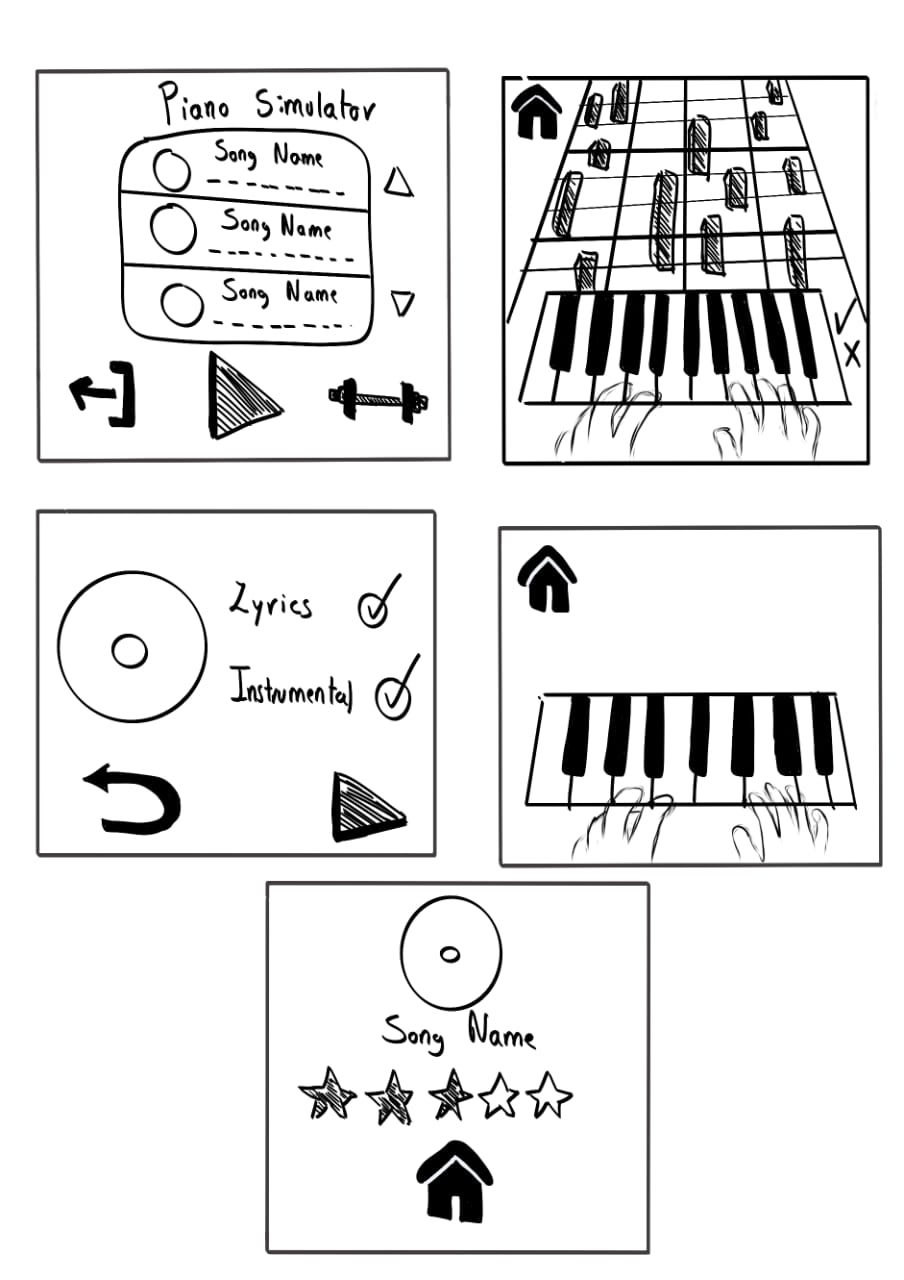 Piano Simulator
Song Name
Song Name
Song Name
Lyrics
Instrumental
Song Name